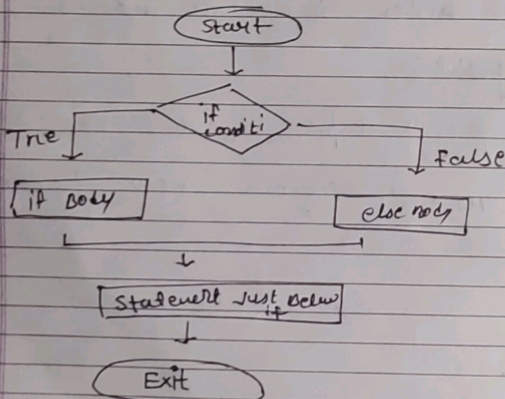 Start
if
conditi
True
False
if Body
else Body
Statement Just Below
if
Exit